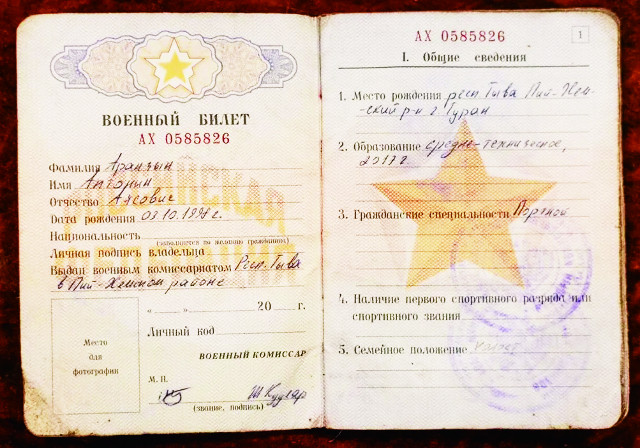 ВОЕННЫЙ БИЛЕТ
АХ 0585826
Фамилия Аранзын
Имя
Отчество Аясович
Дата рождения 03.10.199 г.
Национальность
(заполняется по желанию гражданина)
Личная подпись владельца
Выдан военным комиссариатом Респ. Тыва
в Пий-Хемском районе
„ “ 20 г.
Личный код
Место
для
фотографии
ВОЕННЫЙ КОМИССАР
М. П.
(звание, подпись)
АХ 0585826
1
I. Общие сведения
1. Место рождения респ Тыва Пий-Хем-
-ский р-н г Туран
2. Образование средне-техническое,
2017 г.
3. Гражданские специальности Портной
4. Наличие первого спортивного разряда или
спортивного звания
5. Семейное положение холост